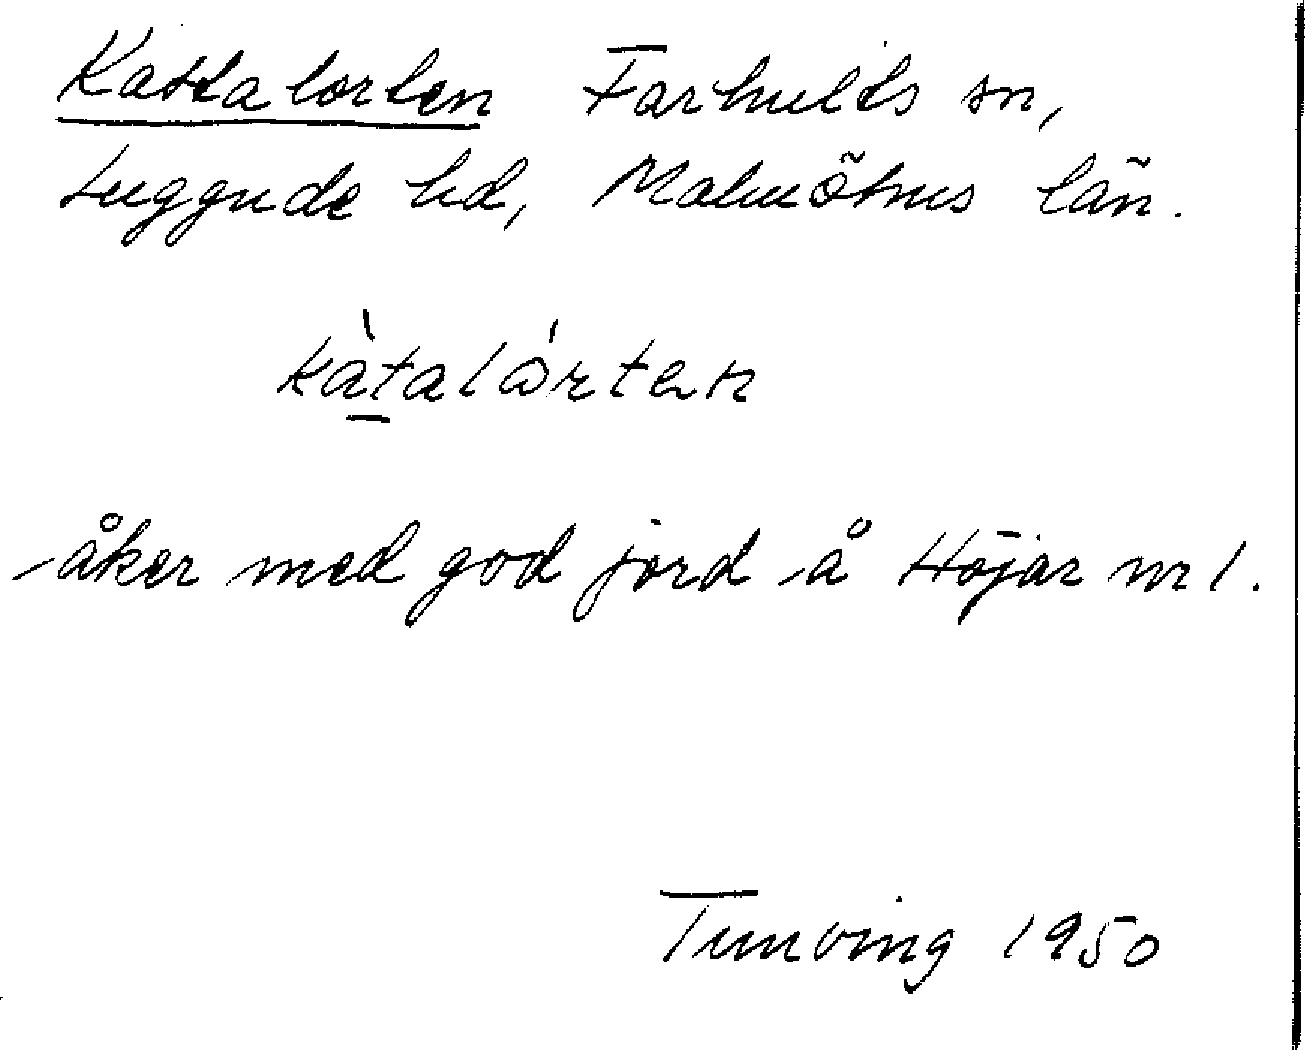 Kattalorten Farhults sn,
Luggude hd, Malmöhus län.
kàtalǻrten
åker med god jord å Höjar nr 1.
Tunving 1950